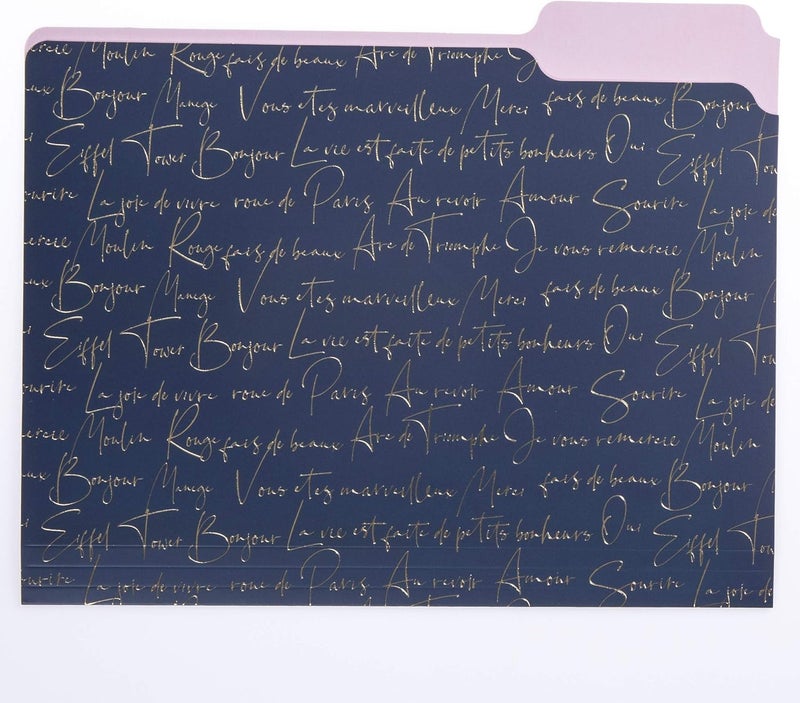 ercie Moulin Rouge fais de beaux Arc de Triomphe J
ux Bonjour Manege Vous etes marveilleux Merci fais de beaux Bonjour
ui Eiffel Tower Bonjour La vie est faite de petits bonheurs Oui Eiffel Tow
ourire La joie de vivre roue de Paris Au revoir Amour Sourire La joie de
ercie Moulin Rouge fais de beaux Arc de Triomphe Je vous remercie Moulin
ux Bonjour Manege Vous etes marveilleux Merci fais de beaux Bonjour
ui Eiffel Tower Bonjour La vie est faite de petits bonheurs Oui Eiffel Tow
ourire La joie de vivre roue de Paris Au revoir Amour Sourire La joie de
ercie Moulin Rouge fais de beaux Arc de Triomphe Je vous remercie Moulin
ux Bonjour Manege Vous etes marveilleux Merci fais de beaux Bonjour
ui Eiffel Tower Bonjour La vie est faite de petits bonheurs Oui Eiffel Tow
ourire La joie de vivre roue de Paris Au revoir Amour Sourire La joie de